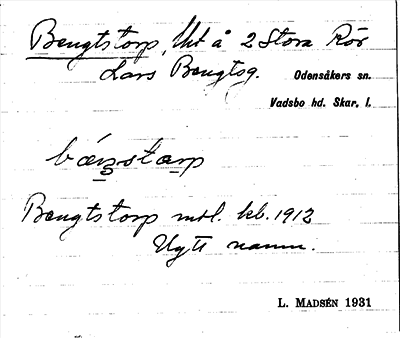 Bengtstorp, Uht å 2 Stora Rör
Lars Bengtsg.
Odensåkers sn.
Vadsbo hd. Skar. l.
bæŋstarp
Bengtstorp mtl. kb. 1912
Nytt namn.
L. MADSÉN 1931